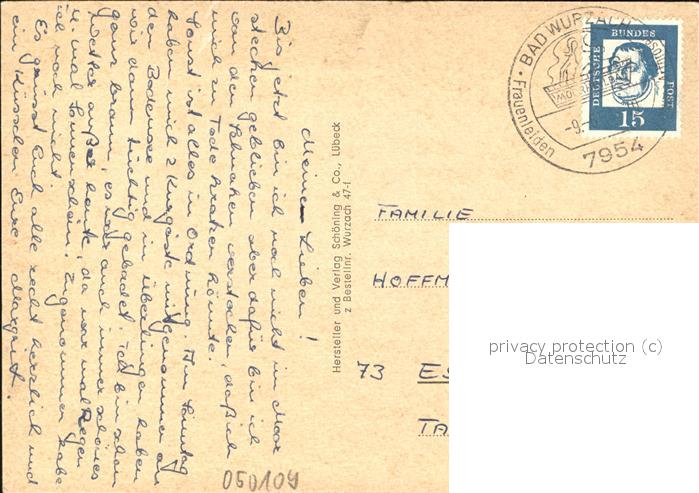 Meine Lieben!
Bis jetzt bin ich noch nicht im Moor
stecken geblieben aber dafür bin ich
von den Schnaken verstochen, daß ich
mich zu Tode kratzen könnte.
Sonst ist alles in Ordnung. Am Sonntag
haben mich 2 Kurgäste mitgenommen an
den Bodensee und in Überlingen haben
wir dann tüchtig gebadet. Ich bin schon
ganz braun, es war auch immer schönes
Wetter außer heute, da war mal Regen
u. mal Sonnenschein. Zugenommen habe
ich noch nicht.
Es grüsst Euch alle recht herzlich und
ein Küsschen Eure Margret.
Hersteller und Verlag Schöning & Co., Lübeck
z Bestellnr. Wurzach 47-f
BAD WURZACH
Frauenleiden
-9.
7954
DEUTSCHE
BUNDES
POST
15
FAMILIE
HOFFM
73 ES
TA
privacy protection (c)
Datenschutz
050109